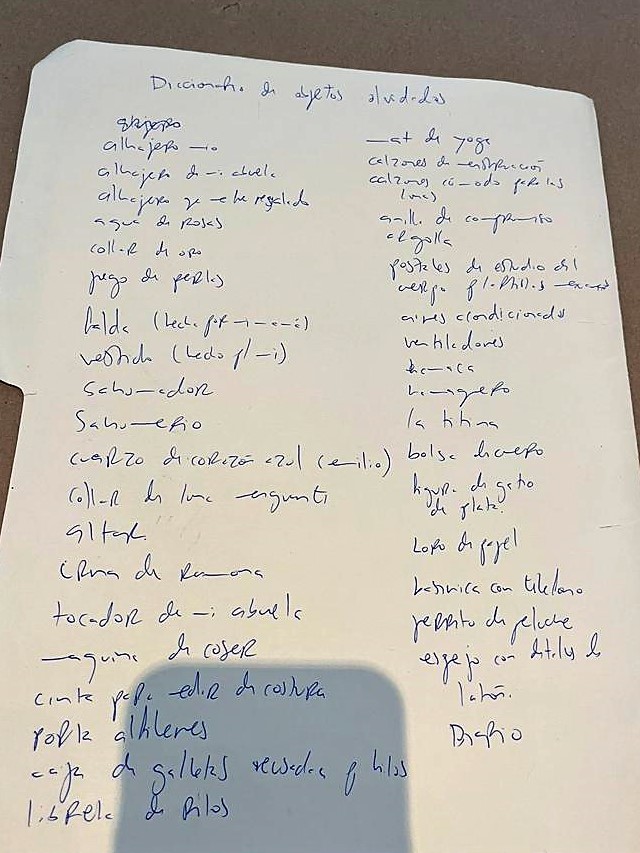 Diccionario de objetos olvidados
alhajero mio
alhajero de mi abuela
alhajero que me he regalado
agua de rosas
collar de oro
juego de perlas
falda (hecha por mi mamá)
vestido (hecho p/ mi)
Sahumador
Sahumerio
cuarzo de corazón azul (emilio)
collar de luna menguante
altar.
cama de Ramona
tocador de mi abuela
maquina de coser
cinta para medir de costura
porta alfileres
caja de galletas reusada p/ hilos
libreta de
mat de yoga
calzones de menstruación
calzones cómodo para las
lunas
anillo de compromiso
argolla
postales de estudio del
cuerpo
aires acondicionados
ventiladores
hamaca
hamaquero
la titina
bolsa de cuero
figura de gatio
de plata.
Loro de papel
botinica con telefono
perrito de peluche
espejo con detalles de
latón.
Diario